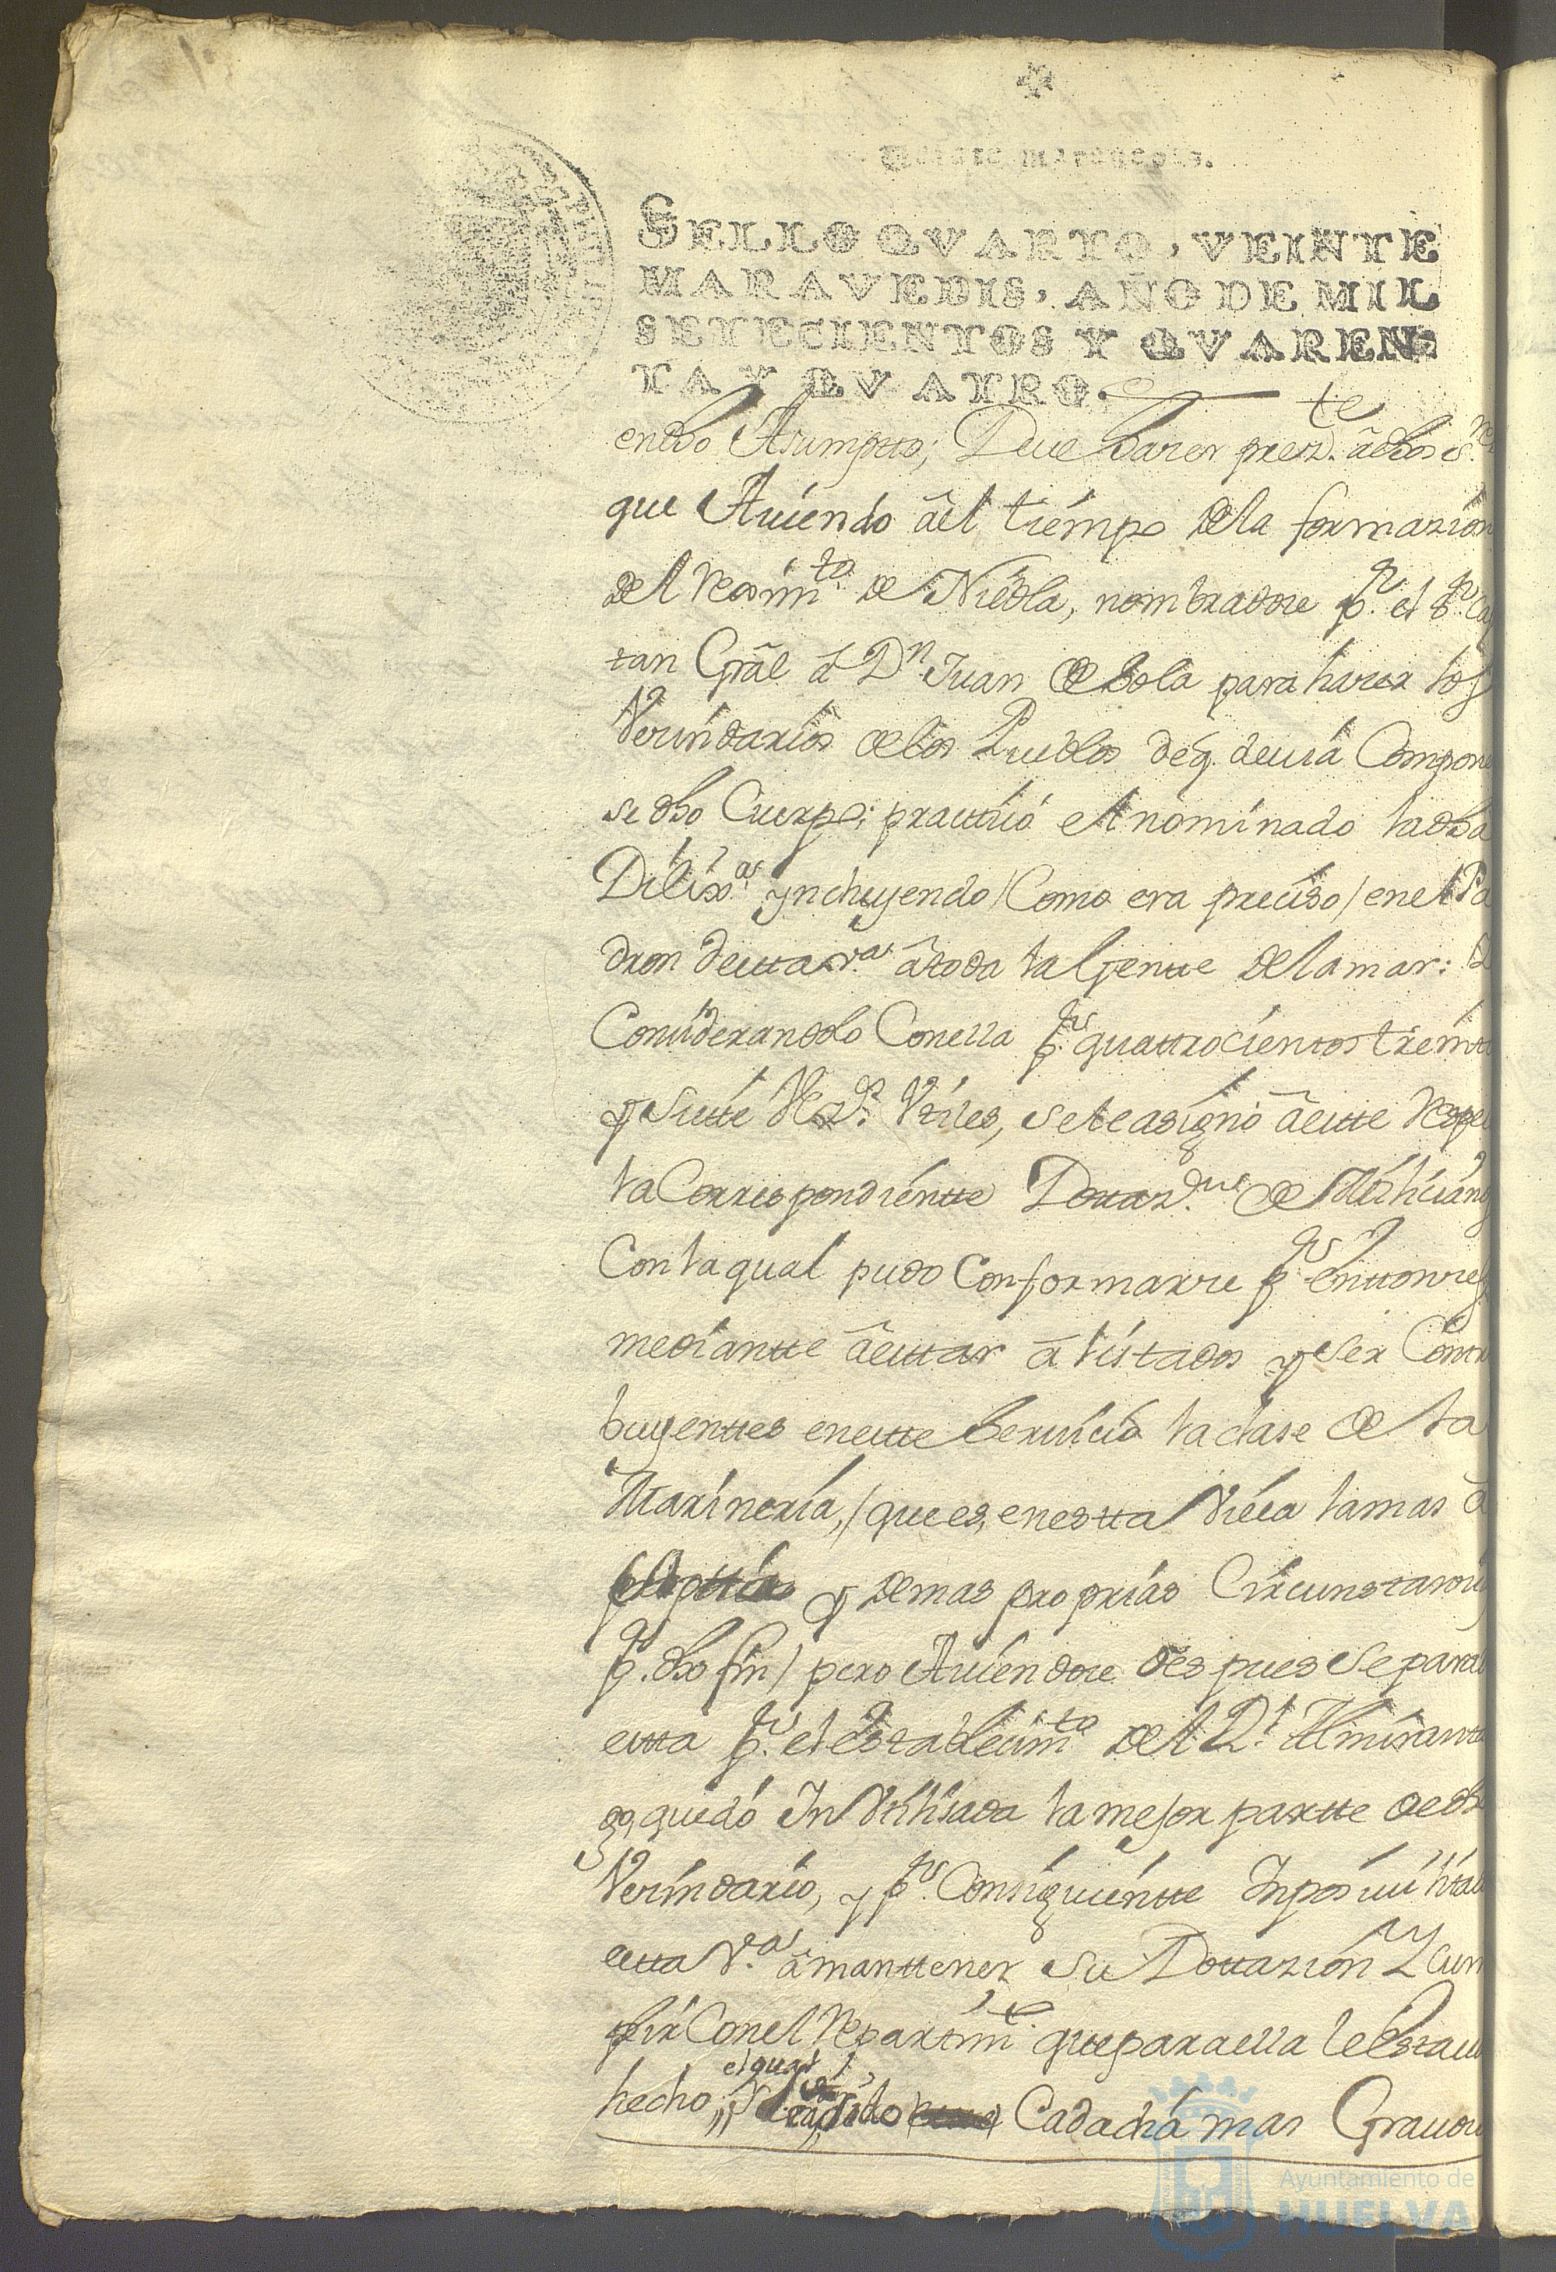 Veinte maravedis.
SELLO QVARTO, VEINTE
MARAVEDIS, AÑO DE MIL
SETECIENTOS Y QVAREN-
TA Y QVATRO.
en dho Asumptto; Deve hazer presz.te â dhos s.res
que Auiendo âel tiempo de la formazion
del Reximto de Niebla, nombradose p.r el s.r Ca
tan Grâl â D.n Juan de Sola para hazer los
Vezindarios de los Pueblos de q. deuia Compone
se dho Cuerpo; practticó el nominado la dha
Dilix.as yncluyendo / Como era preciso / en el Pa
dron de estta v.a â toda la Gentte de la mar: Y
Considerandolo Con ella p.r quattrocienttos treintta
y Siette Vez.os Vtiles, se le asignó â estte Respe
la Correspondientte Dottaz.on de Milicianos
Con la qual pudo Conformarse p.r enttonzes
mediantte â esttar âlistados y ser Contri
buyenttes en estte Seruicio la clase de la
Marineria, / que es, en estta Villa la mas
y demas proprias Circunstanzias
p.a dho fin / pero Auiendose despues Separado
estta p.r el establecimto del R.l Almirantta
go, quedó Inutilisada la mejor partte de dho
Vezindario, y p.r Consiguientte Inposiuilitada
estta V.a â manttener su Dottazion Y Cum
plir Con el Repartim.to que para ella le Estaua
hecho, el qual ha sido Cada dia mas Grauoso
Ayuntamiento de
HUELVA